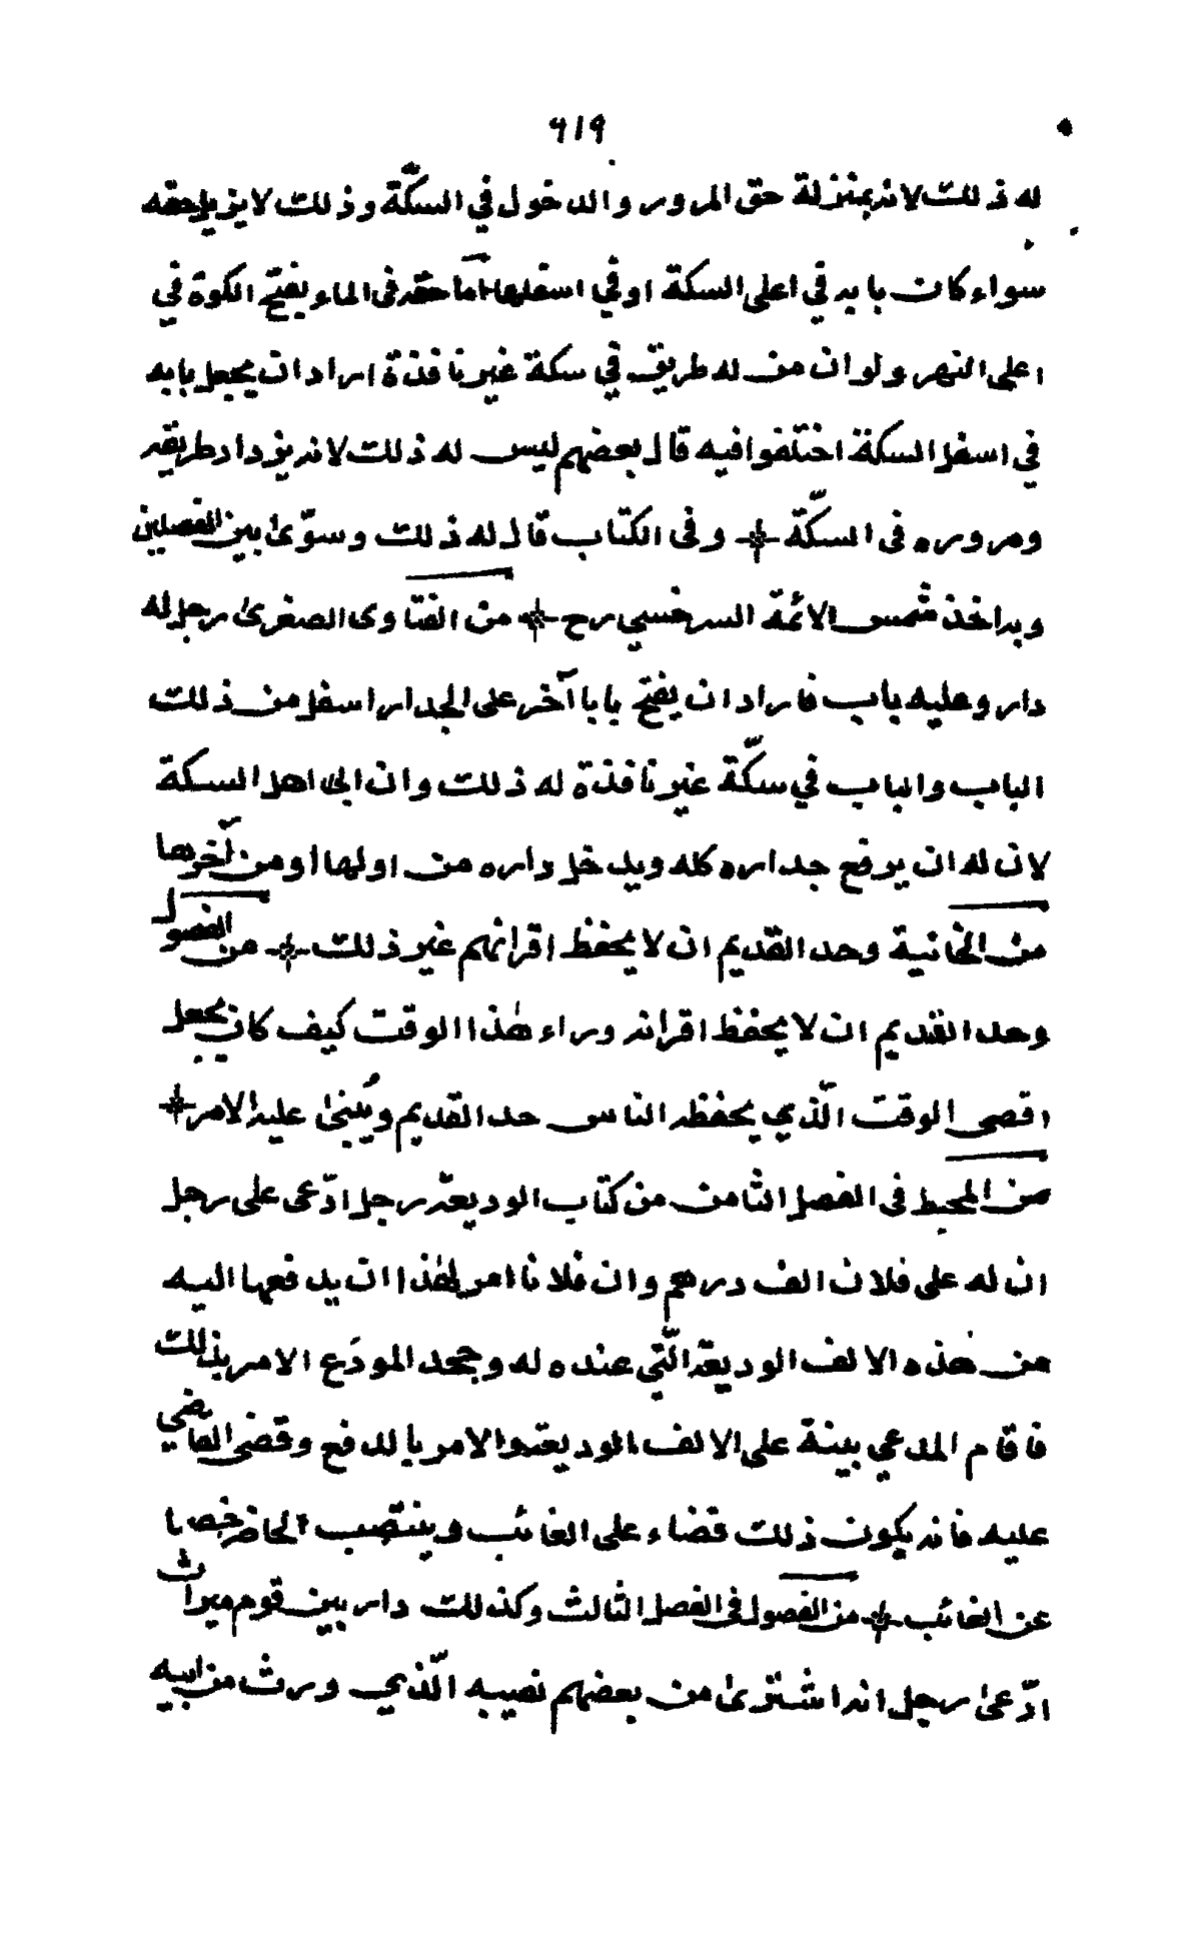 ٦١٩
له ذلك لانه بمنزلة حق المرور والدخول في السكّة وذلك لا يزيل حقه
سواء كان بابه في اعلى السكة او في اسفلها اما حقه في الماء وبفتح الكوة في
اعلى النهر ولو ان من له طريق في سكة غير نافذة اراد ان يجعل بابه
في اسفل السكة اختلفوا فيه قال بعضهم ليس له ذلك لانه يزداد طريقه
ومروره في السكّة وفى الكتاب قال له ذلك وسوّىٰ بين الفصلين
وبه اخذ شمس الائمّة السرخسي رح من الفتاوى الصغرىٰ رجل له
دار وعليه باب فاراد ان يفتح بابا آخر على الجدار اسفل من ذلك
الباب والباب في سكّة غير نافذة له ذلك وان ابى اهل السكة
لان له ان يرفع جداره كله ويدخل داره من اولها او من آخرها
من الخانية وحد القديم ان لا يحفظ اقرانهم غير ذلك من الفصول
وحد القديم ان لا يحفظ اقرانه وراء هٰذا الوقت كيف كان يجعل
اقصى الوقت الّذي يحفظه الناس حد القديم ويُبنىٰ عليه الامر
من المحيط فى الفصل الثامن من كتاب الوديعة رجل ادّعى على رجل
ان له على فلان الف درهم وان فلانا امر لهٰذا ان يدفعها اليه
من هٰذه الالف الوديعة الّتي عنده له وجحد المودَع الامر بذلك
فاقام المدعي بينة على الالف الوديعة والامر بالدفع وقضى القاضي
عليه فانه يكون ذلك قضاء على الغائب وينتصب الحاضر خصما
عن الغائب من الفصول في الفصل الثالث وكذلك دار بين قوم ميراث
ادّعىٰ رجل انه اشترىٰ من بعضهم نصيبه الّذي ورث من ابيه